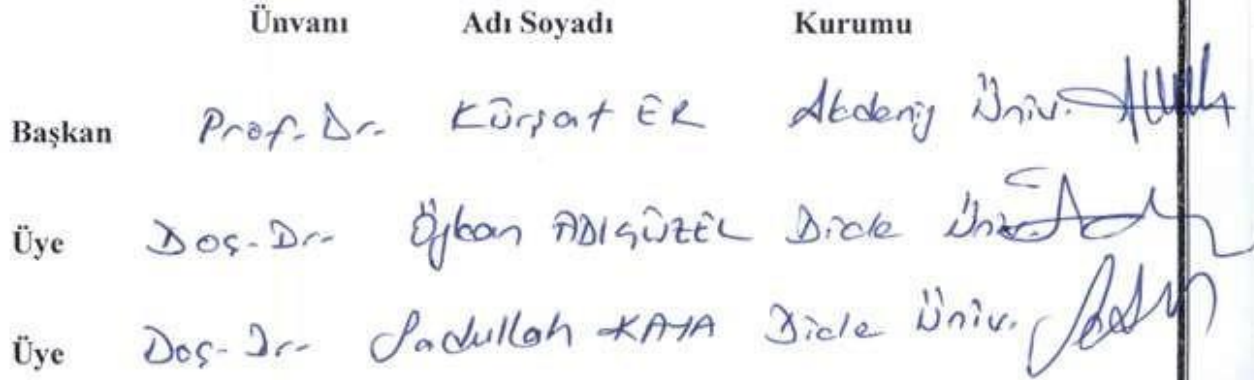 Ünvanı Adı Soyadı Kurumu
Başkan Prof. Dr. Kürşat ER Akdeniz Üniv.
Üye Doç. Dr. Özkan ADIGÜZEL Dicle Üniv.
Üye Doç. Dr. Sadullah KAYA Dicle Üniv.